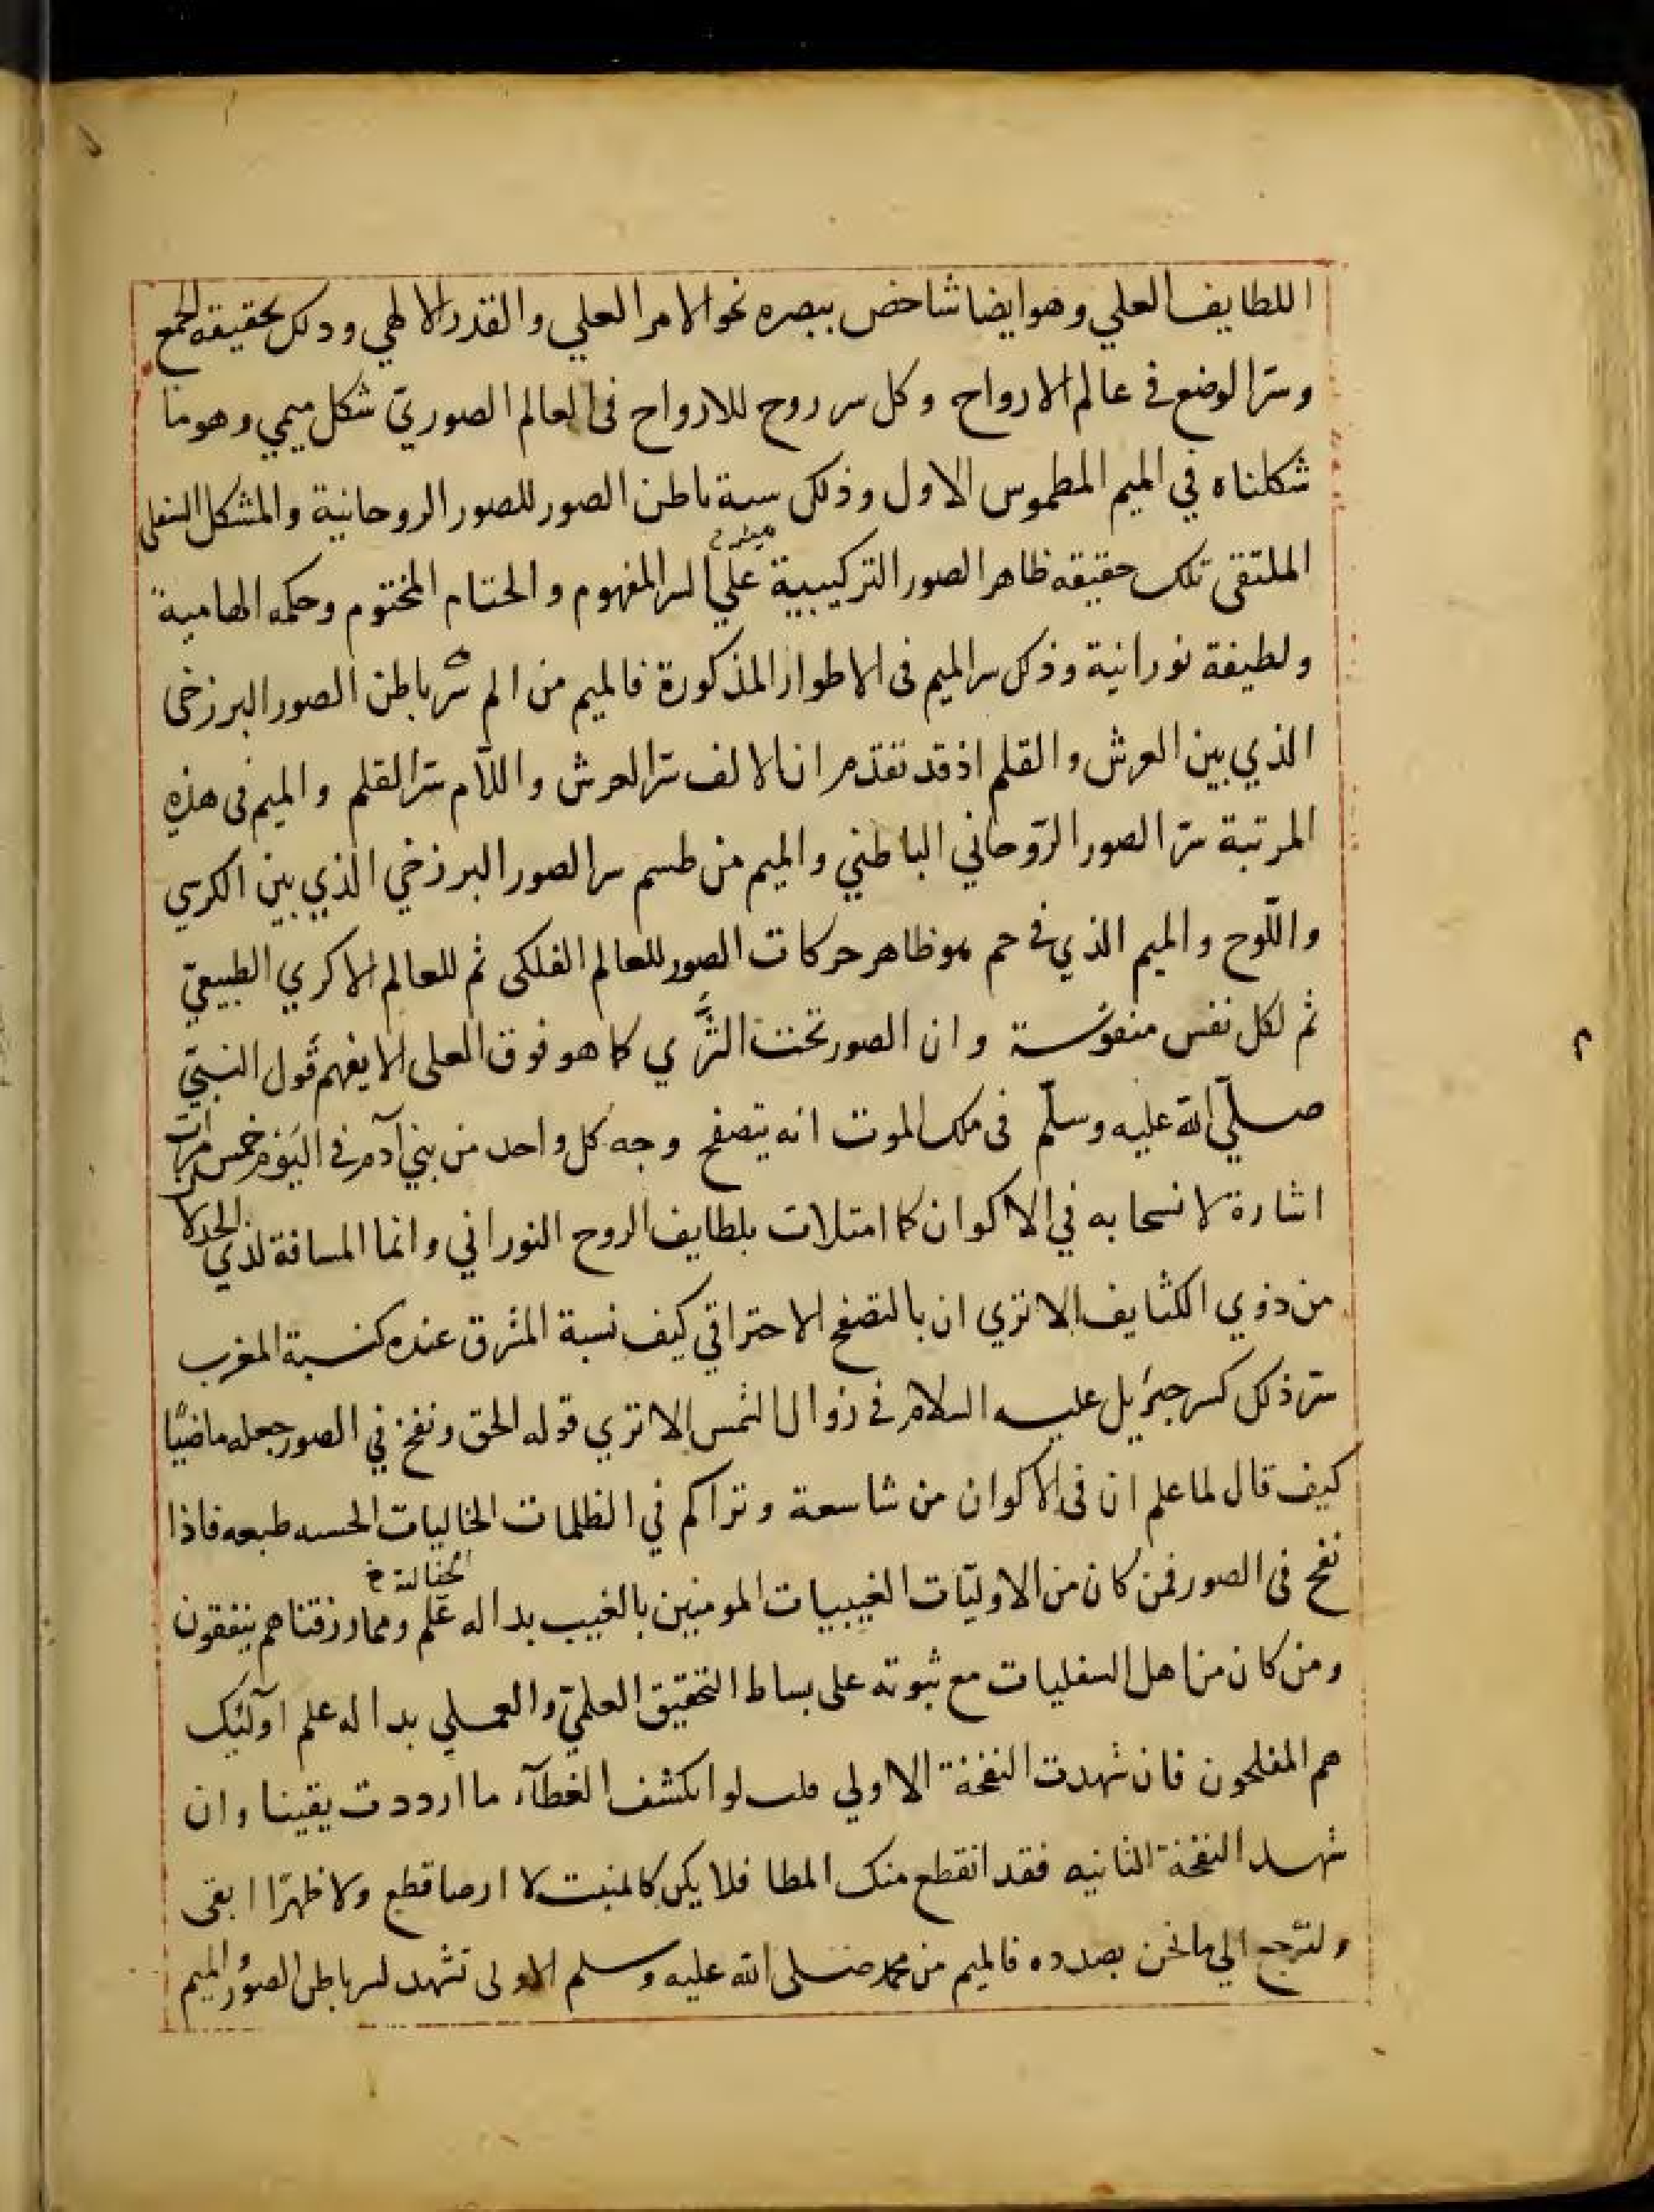 اللطايف العلي وهو ايضا شاخص ببصره نحو الامر العلي والقدر الالهي وذلك بحقيقة الجمع
وسرّ الوضع في عالم الارواح وكل سر روح للارواح فى العالم الصوريّ شكل ميمي وهو ما
شكلناه في الميم المطموس الاول وذلك باطن الصور للصور الروحانية والمشكل السفلى
الملتقى تلك حقيقه ظاهر الصور التركيبية على السر المفهوم والختام المختوم وحكمه الهامية
ولطيفة نورانية وذلك سر الميم فى الاطوار المذكورة فالميم من الم سرّ باطن الصور البرزخى
الذي بين العرش والقلم اذ قد تقدّم ان الالف سرّ العرش واللّام سرّ القلم والميم فى هذه
المرتبة سرّ الصور الرّوحاني الباطني والميم من طسم سر الصور البرزخي الذي بين الكرسي
واللّوح والميم الذي فى حم هو ظاهر حركات الصور للعالم الفلكى ثم للعالم الاكري الطبيعيّ
ثم لكل نفس منفوسة وان الصور تحت الثّري كما هو فوق العلى الا يفهم قول النبيّ
صلّي الله عليه وسلّم فى ملك الموت انه يتصفح وجه كل واحد من بني آدم في اليوم خمس مرات
اشارة لانسحابه في الاكوان كما امتلات بلطايف الروح النوراني وانما المسافة لذي الحد لا
من ذوي الكثايف الا تري ان بالتصفح الاحتراقي كيف نسبة المشرق عنده كنسبة المغرب
سرّ ذلك كسر جبرئيل عليه السلام في زوال الشمس الا تري قوله الحق ونفخ في الصور جعله ماضيًا
كيف قال لما علم ان فى الاكوان من شاسعة وتراكم في الظلمات الخاليات الحسه طبعه فاذا
نفخ فى الصور فمن كان من الاوليّات الغيبيات المومنين بالغيب بدا له علم ومما رزقناهم ينفقون
ومن كان من اهل السفليات مع ثبوته على بساط التحقيق العلميّ والعملي بدا له علم اولئيك
هم المفلحون فان شهدت النفخة الاولي قلت لو انكشف الغطآء ما ازددت يقينا وان
شهد النفخة الثانيه فقد انقطع منك المطا فلا يكن كالمنبت لا ارضا قطع ولا ظهرًا ابقى
ولنرجع الي ما نحن بصدده فالميم من محمد صلى الله عليه وسلم الاولى تشهد لسر باطن الصور والميم